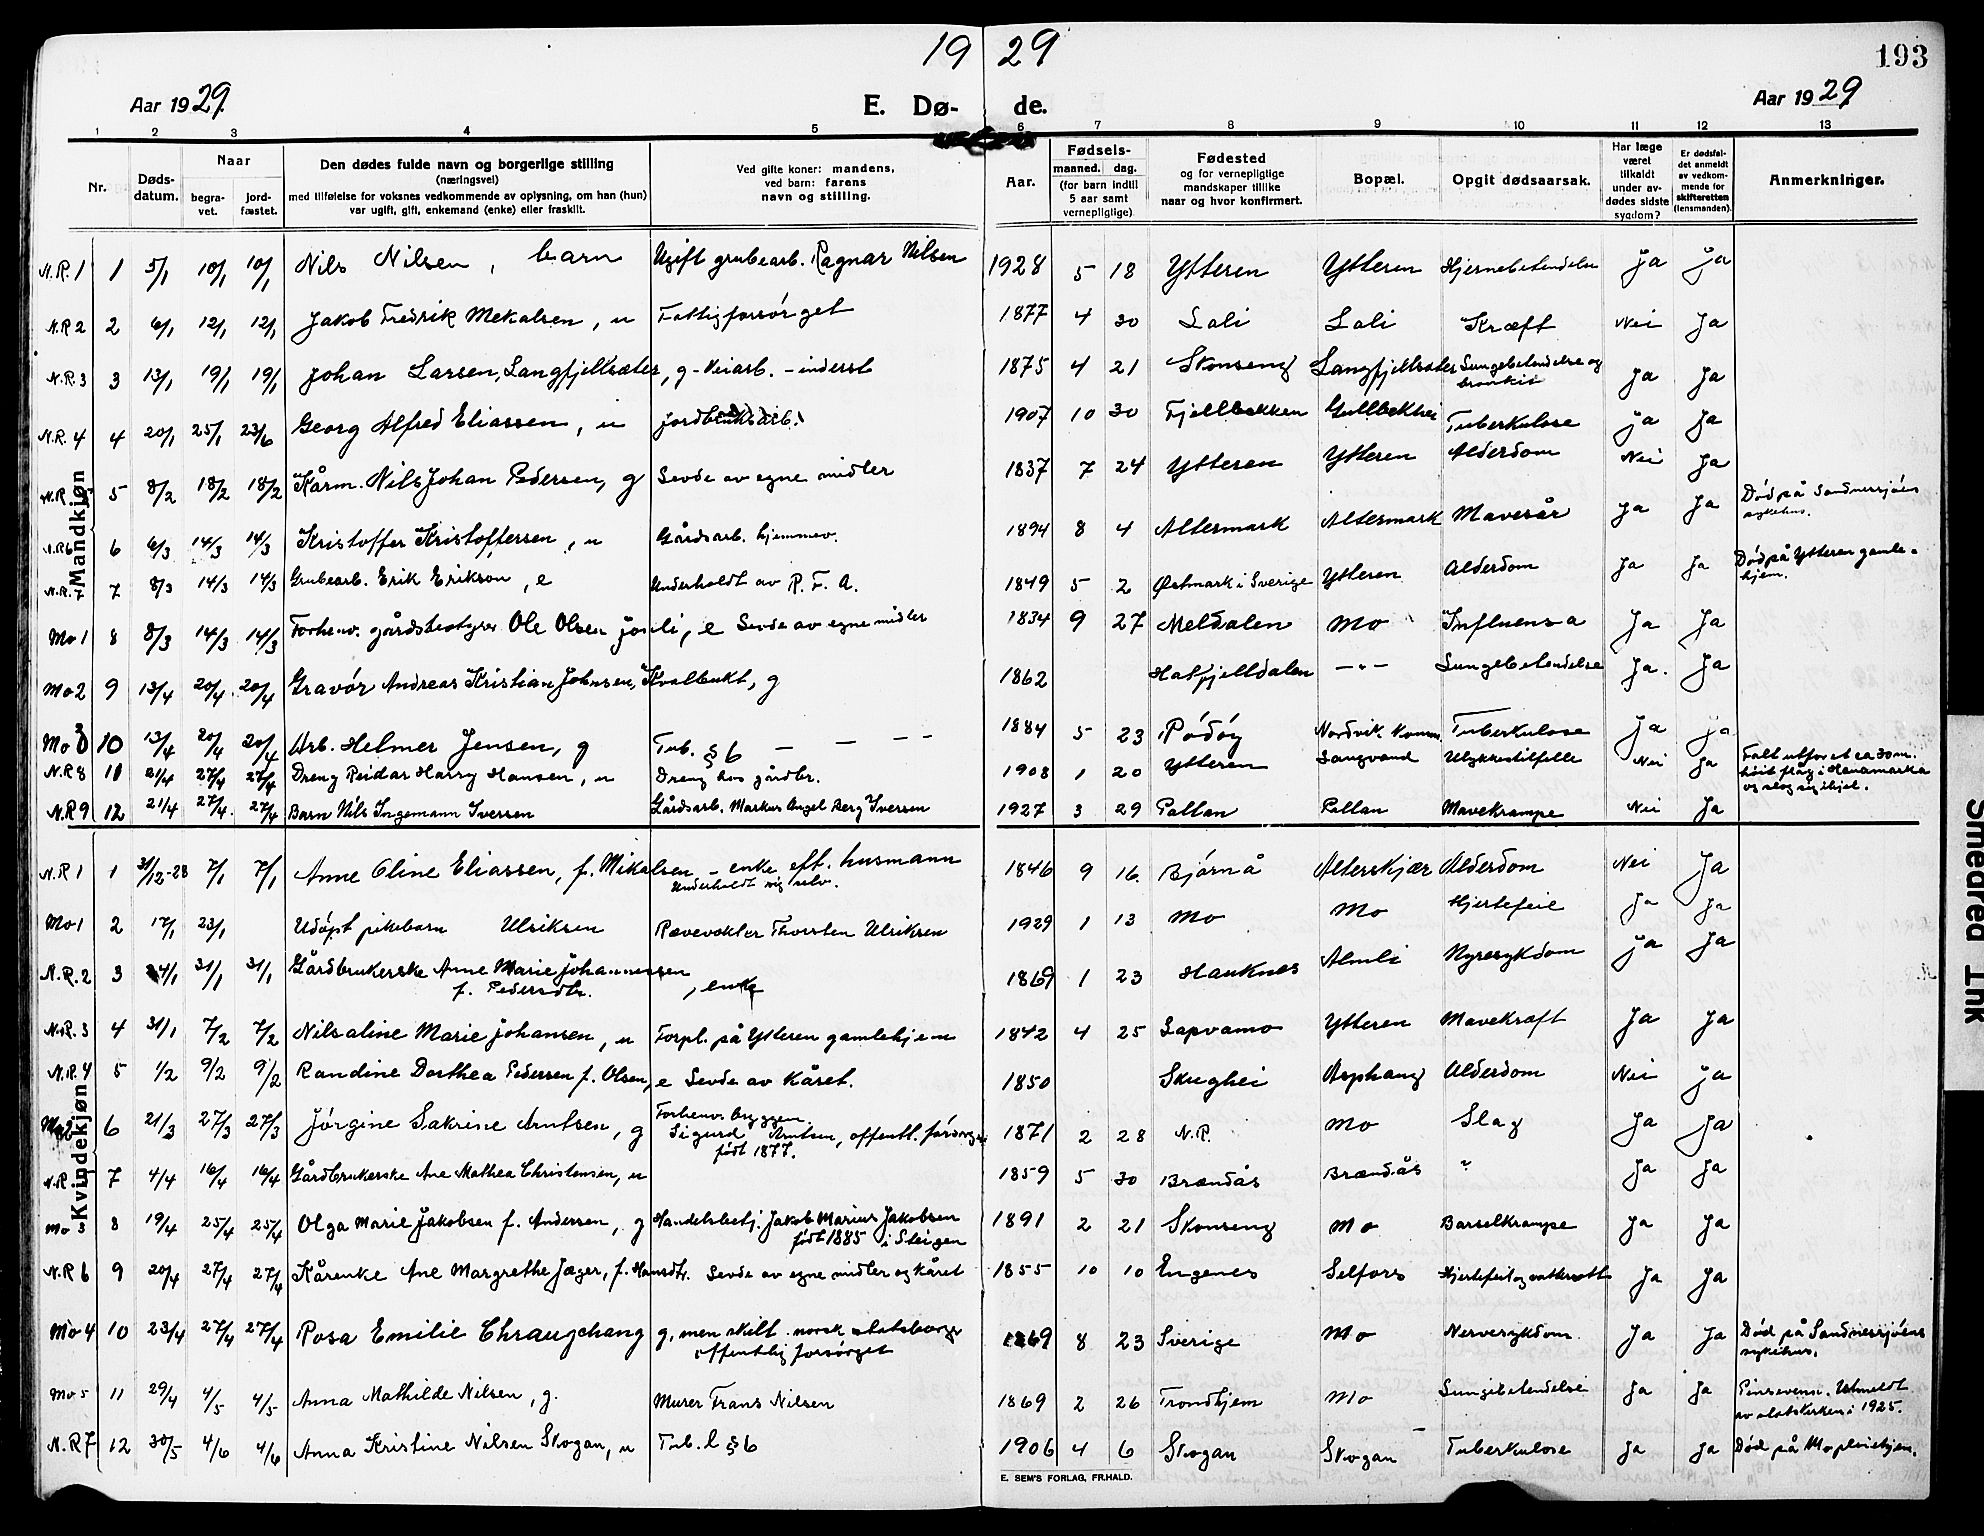 19 29
193
Aar 1929.
E. Dø- de.
Aar 1929
1 2 3 4 5 6 7 8 9 10 11 12 13
Nr.
Døds-
datum.
Naar
begra-
vet.
jord-
fæstet.
Den dødes fulde navn og borgerlige stilling
(næringsvei)
med tilføielse for voksnes vedkommende av oplysning, om han (hun)
var ugift, gift, enkemand (enke) eller fraskilt.
Ved gifte koner: mandens,
ved barn: farens
navn og stilling.
Aar.
Fødsels-
maaned. dag.
(for barn indtil
5 aar samt
vernepligtige)
Fødested
og for vernepligtige
mandskaper tillike
naar og hvor konfirmert.
Bopæl.
Opgit dødsaarsak.
Har læge
været
tilkaldt
under av-
dødes sidste
sygdom?
Er dødsfal-
det anmeldt
av vedkom-
mende for
skifteretten
(lensmanden).
Anmerkninger.
Mandkjøn
N.R. 1 1 5/1 10/1 10/1 Nils Nilsen, barn Ugift grubearb. Ragnar Nilsen 1928 5 18 Ytteren Ytteren Hjernebetendelse Ja Ja
N.R 2 2 6/1 12/1 12/1 Jakob Fredrik Mekalsen, u Fattigforsørget 1877 4 30 Lali Lali Kræft Nei Ja
N.R. 3 3 13/1 19/1 19/1 Johan Larsen, Langfjellsæter, g - Veiarb. - inderst 1875 4 21 Skonseng Langfjellsæter Lungebetendelse og
bronkit Ja Ja
N.R. 4 4 20/1 25/1 23/6 Georg Alfred Eliassen, u jordbruksarb. 1907 10 30 Fjellbekken Tuberkulose Ja Ja
N.R. 5 5 8/2 18/2 18/2 Kårm. Nils Johan Pedersen, g Levde av egne midler 1837 7 24 Ytteren Ytteren Alderdom Nei Ja
N.R 6 6 6/3 14/3 14/3 Kristoffer Kristoffersen, u Gårdsarb. hjemmev. 1894 8 4 Altermark Altermark Mavesår Ja Ja Død på Sandnessjøen
sykehus.
N.R. 7 7 8/3 14/3 14/3 Grubearb. Erik Erikson, e Underholdt av R. F. A. 1849 5 2 Østmark i Sverige Ytteren Alderdom Ja Ja Død på Ytteren gamle-
hjem.
Mo 1 8 8/3 14/3 14/3 Forhenv. gårdsbestyrer Ole Olsen Josli, e Levde av egne midler 1834 9 27 Meldalen Mo Influensa Ja Ja
Mo 2 9 13/4 20/4 20/4 Gravør Andreas Kristian Johnsen, Kvalbukt, g 1862 Hatfjelldalen — " — Lungebetendelse Ja. Ja
Mo 3 10 13/4 20/4 20/4 Arb. Helmer Jensen, g Tub. § 6 — — — 1884 5 23 Rødøy Nordvik Komm. Tuberkulose Ja Ja
N.R 8 11 21/4 27/4 27/4 Dreng Reidar Harry Hansen, u Dreng hos gårdbr. 1908 1 20 Ytteren Langvand Ulykkestilfelle Nei Ja Falt utfor et ca 30 m.
høit flåg i Hanamarka
og slog sig ihjel.
N.R 9 12 21/4 27/4. 27/4 Barn Nils Ingemann Iversen Gårdsarb. Markus Angel Berg Iversen 1927 3 29 Pallan Pallan Mavekrampe Nei Ja
Kvindekjøn
N.R 1 1 31/12-28 7/1 7/1 Anne Oline Eliassen, f. Mikalsen - enke eft. husmann
Underholdt sig selv. 1846 9 16. Bjørnå Alterskjær Alderdom Nei Ja
Mo 1 2 17/1 23/1 Udøpt pikebarn Ulriksen Rævevokter Thorsten Ulriksen 1929 1 13 Mo Mo Hjertefeil Ja Ja
N.R. 2 3 24/1 31/1 31/1 Gårdbrukerske Anne Marie Johannessen
f. Pedersdtr. , enke 1869 1 23 Hauknes Almli Nyresykdom Ja Ja
N.R. 3 4 31/1 7/2 7/2 Nilsaline Marie Johansen, u Forpl. på Ytteren gamlehjem 1842 4 25 Lapvamo Ytteren Mavekræft Ja Ja
N.R. 4 5 1/2 9/2 9/2 Randine Dorthea Pedersen f. Olsen, e Levde av kåret. 1850 Skughei Asphaug Alderdom Nei Ja
Mo 2 6 21/3 27/3 27/3 Jørgine Sakrine Arntsen, g Forhenv. bryggem.
Sigurd Arntsen, offentl. forsorg
født 1877. 1871 2 28 N.R. Mo Slag Ja Ja
N.R. 7 4/4 16/4 16/4 Gårdbrukerske Ane Mathea Christensen, u 1859 5 30 Brændås Brændås ? Ja Ja
Mo 3 8 19/4 25/4 25/4 Olga Marie Jakobsen f. Andersen, g Handelsbetj. Jakob Marius Jakobsen
født 1885 i Steigen 1891 2 21 Skonseng Mo Barselkrampe Ja Ja
N.R 6 9 20/4 27/4 27/4 Kårenke Ane Margrethe Jæger, f. Hansdtr. Levde av egne midler og kåret 1855 10 10 Engenes Selfors Hjertefeil og vattersott Ja Ja
Mo 4 10 23/4 27/4 27/4 Rosa Emilie Chraugchang g, men skilt. norsk statsborger
offentlig forsørget 1869 8 23 Sverige Mo Nervesykdom Ja Ja Død på Sandnessjøens
sykehus.
Mo 5 11 29/4 4/5 4/5 Anna Mathilde Nilsen, g. Murer Frans Nilsen 1869 2 26 Trondhjem Mo Lungebetendelse Ja Ja Pinsevenn. Utmeldt
av statskirken i 1925.
N.R 7 12 30/5 4/6 4/6 Anna Kristine Nilsen Skogan, u Tub. l § 6 1906 4 6 Skogan Skogan Tuberkulose Ja Ja Død på Mo pleiehjem.
E. SEM'S FORLAG, FR.HALD.